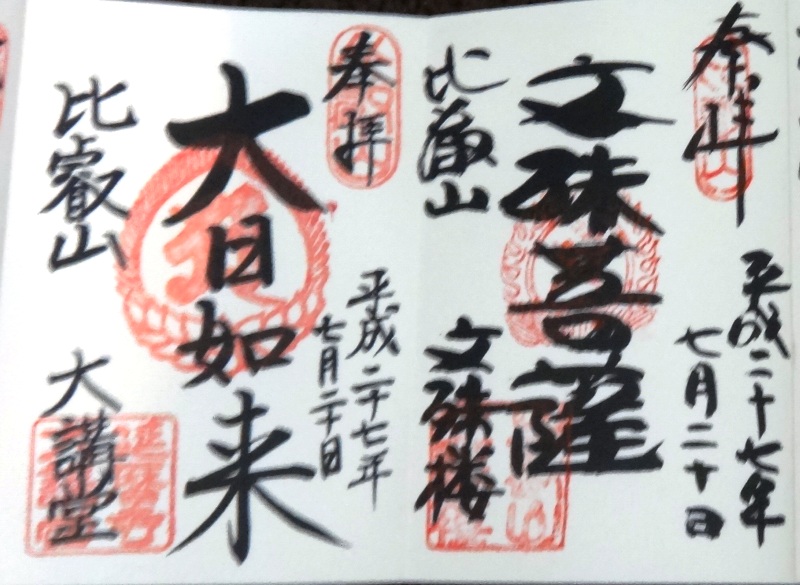 奉拝
平成二十七年
七月二十日
文殊菩薩
比叡山
文殊楼
奉拝
平成二十七年
七月二十日
大日如来
比叡山
大講堂